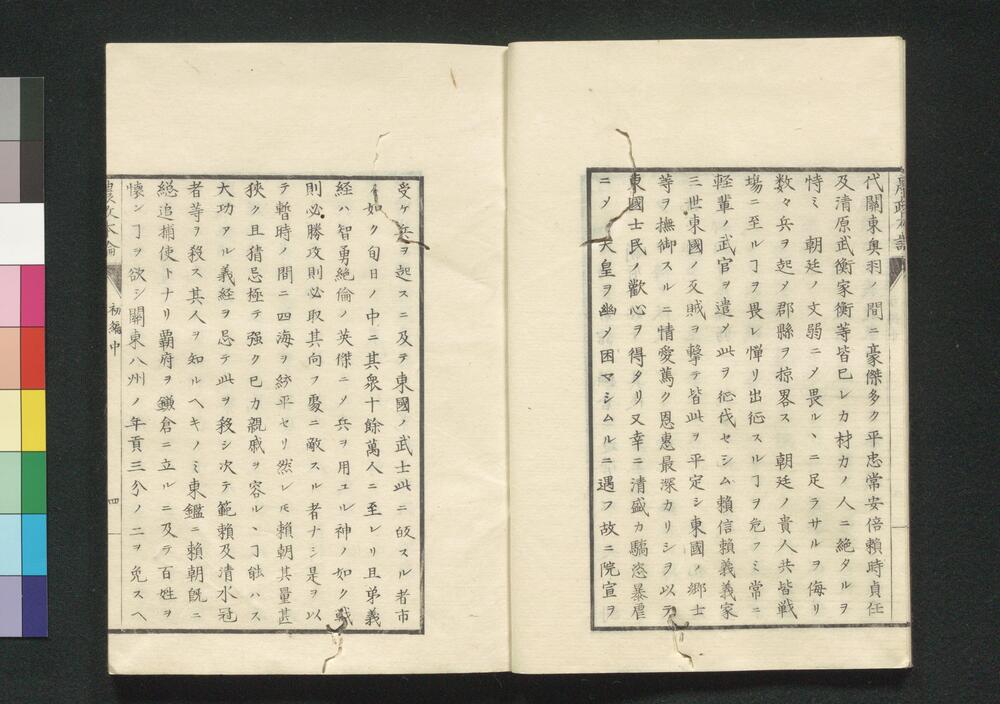 代關東奥羽ノ間ニ豪傑多ク平忠常安倍賴時貞任
及清原武衡家衡等皆已レカ材力ノ人ニ絶タルヲ
恃ミ　朝廷ノ文弱ニメ畏ルヽニ足ラサルヲ侮リ
数々兵ヲ起メ郡縣ヲ掠畧ス　朝廷ノ貴人共皆戦
塲ニ至ルヿヲ畏レ憚リ出征スルヿヲ危フミ常ニ
軽輩ノ武官ヲ遣メ此ヲ征伐セシム賴信賴義義家
三世東國ノ叐賊ヲ擊テ皆此ヲ平定シ東國ノ郷士
等ヲ撫御スルニ情愛篤ク恩惠最深カリシヲ以テ
東國士民ノ歡心ヲ得タリ又幸ニ清盛カ驕恣暴虐
ニメ　天皇ヲ幽メ困マシムルニ遇フ故ニ院宣ヲ
受ケ兵ヲ起スニ及テ東國ノ武士此ニ皈スル者市
ノ如ク旬日ノ中ニ其衆十餘萬人ニ至レリ且弟義
経ハ智勇絶倫ノ英傑ニメ兵ヲ用ユル神ノ如ク戰
則必勝攻則必取其向フ處ニ敵スル者ナシ是ヲ以
テ暫時ノ間ニ四海ヲ紛平セリ然レモ賴朝其量甚
狹ク且猜忌極テ强ク已カ親戚ヲ容ルヽヿ能ハス
大功アル義経ヲ忌テ此ヲ殺シ次テ範賴及清水冠
者等ヲ殺ス其人ヲ知ルヘキノミ東鑑ニ賴朝旣ニ
緫追捕使トナリ覇府ヲ鎌倉ニ立ルニ及テ百姓ヲ
懐シヿヲ欲シ關東八州ノ年貢三分ノ二ヲ免スヘ
農政本論
初編中
四